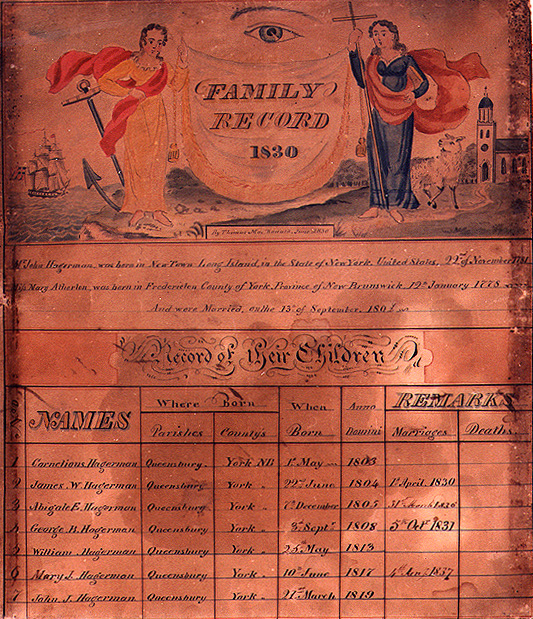 FAMILY
RECORD
1830
By Thomas Mac June 1830
Mr John Hagerman, was born in New Town Long Island, in the State of New York. United States, 22d of November 1781
Miss Mary Atherton, was born in Fredericton County of York, Province of New Brunswick, 12th January 1778
And were Married, on the 13th of September, 180
Record of their Children
NAMES Where Born When Anno REMARKS
Parishes County's Born Domini Marriages Deaths
1 Cornelious Hagerman Queensbury York NB 1st May 1803
2 James W. Hagerman Queensbury York " 22nd June 1804 1st April 1830
3 Abigale E. Hagerman Queensbury York " 1st December 1805
4 George B. Hagerman Queensbury York " 3d Septr 1808 5th Octr 1831
5 William Hagerman Queensbury York " 25th May 1813
6 Mary J. Hagerman Queensbury York " 10th June 1817 1837
7 John J. Hagerman Queensbury York " 21st March 1819